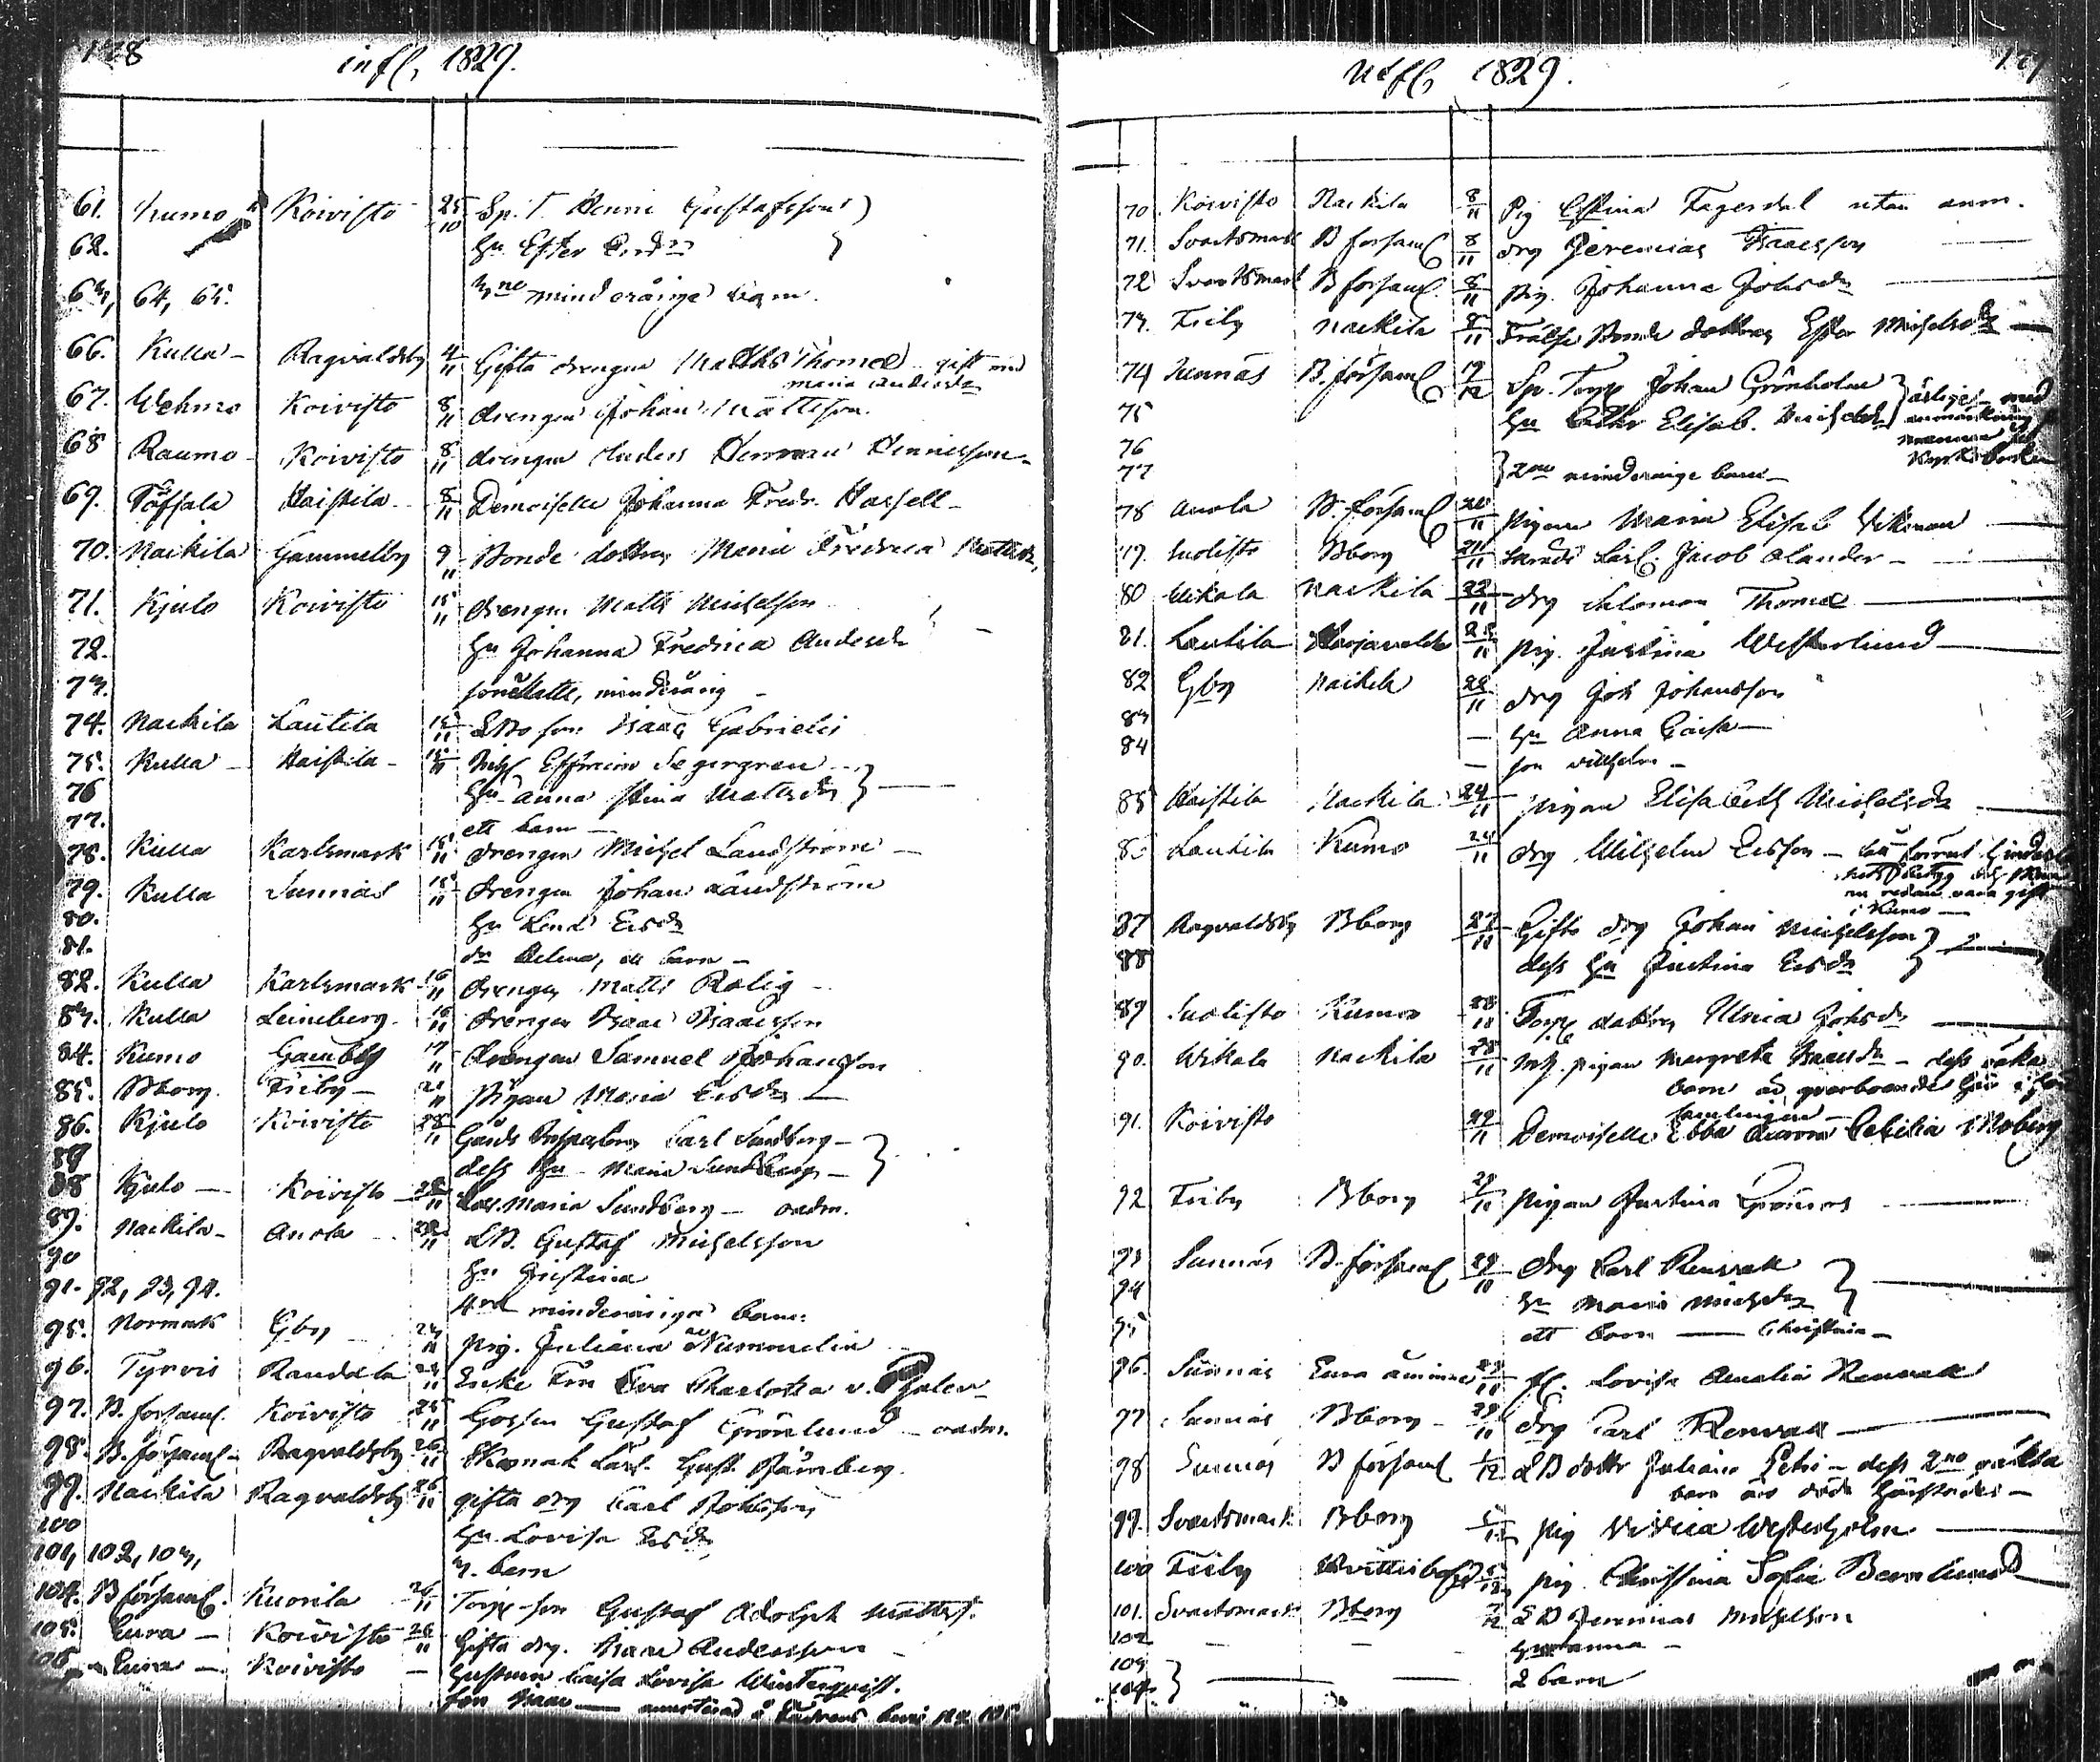 infl, 1829.
61. Kumo Koivisto 25/10 Sp. T. Henric Gustafsson
62. Hu Ester
63, 64, 65. 3ne minderåriga barn.
66. Kulla Ragvaldsby 4/11 Gifta drengen Matths Thomæ gift med
Maria Andersdr
67. Wehmo Koivisto 8/11 drengen Johan Mattsson.
68 Raumo Koivisto 8/11 drengen Anders Herman Henricsson
69. Töfsala Haistila 8/11 Demoiselle Johanna Fredr. Hassell
70. Nackila Gammelby 9/11 Bonde dottren Maria Fredrica Mattsdr,
71. Kjulo Koivisto 15/11 drengen Matts Michelsson
72. Hu Johanna Fredrica Andersdr
73. sone Matts, minderårig
74. Nackila Lautila 15/11 son Isaac Gabrielis
75. Kulla Haistila 15/11 Effraim Segergren
76 Hu Anna Stina Mattsdr
77. ett barn
78. Kulla Karlsmark 15/11 drengen Michel Landström
79. Kulla Sunnäs 15/11 drengen Johan Landström
80. Hu Lena Ersdr
81. dr Helena, ett barn
82. Kulla Karlsmark 16/11 drengen Matts Rolig
83. Kulla Leineberg. 16/11 drengen Isaac Isaacsson
84. Kumo Gamby 17/11 drengen Samuel Johansson
85. Bborg. Friby 21/11 Pigan Maria Ersdr
86. Kjulo Koivisto 28/11 Gårds Inspectoren Carl Sundberg
87 dess Hu Maria Sundberg
88 Kjulo Koivisto 28/11 Maria Sundberg
89. Nackila Anola 22/11 LB. Gustaf Michelsson
90 Hu Justina
91. 92, 93, 94. 4ra minderåriga barn
95. Normark Gby 24/11 pig. Juliana Nummelin
96. Tyrvis Randala 24/11 Enke Fru Eva Charlotta v. Phaler
97. B. församl. Koivisto 25/11 Gossen Gustaf Grönlund
98. B. församl. Ragvaldsby 26/11 Skomak Lärl. Gust. Färnberg.
99. Nackila Ragvaldsby 26/11 gifta drg Carl Johsson
100 Hu Lovisa Ersdr
101, 102, 103, 3. barn
104. B församl. Kuorila 26/11 Torp. son Gustaf Adolph Mattss.
105. Eura Koivisto 26/11 Gifta drg. Isaac Andersson
106 Eura Koivisto Hustrun Caisa Lovisa Winterqvist.
son Isaac
Utfl, 1829.
70. Koivisto Nackila 8/11 Pig Cristina Fagerdal utan anm.
71. Svartsmark B församl 8/11 drg Jeremias Isaacsson
72 Svartsmark B församl. 8/11 pig. Johanna Johsdr
73. Friby Nackila 8/11 Frälse Bonde dottren Ester Michelsdr
74 Sunnäs B. församl 19/12 Sp. Torp. Johan Grönholm
75 Hu Elisab. Michelsdr
76
77 2ne minderåriga barn
78 Anola B. församl 20/11 Pigan Maria Elisab Vikman
79. Suolisto Bborg 21/11 Lärl. Jacob Olander
80 Wikala Nackila 22/11 drg Salomon Thomæ
81. Lautila Harjavalta 22/11 pig. Justina Westerlund
82 Gby Nackila 22/11 drg Joh Johansson
83 Hu Anna Caisa
84 son Vilhelm
85 Haistila Nackila 24/11 pigan Elisabeth Michelsdr
86 Lautila Kumo 24/11 drg Wilhelm Ersson
nu redan vara gift
i Kumo
87 Ragvaldsby Bborg 27/11 Gifte drg Johan Michelsson
88 dess Hu Justina Ersdr
89 Suolisto Kumo 28/11 Torp. dottren Ulrica Johsdr
90. Wikala Nackila 28/11 pigan Margreta Isaacsdr dess oäkta
barn är qvarboende här i för
samlingen
91. Koivisto 29/11 Demoiselle Ebba Aurora Cecilia Moberg
92 Friby Bborg 29/11 pigan Justina Grönros
93 Sunnäs B. församl 29/11 drg Carl Renvall
94 Hu Maria Michsdr
95 ett barn Christina
96. Sunnäs Eura åminne 29/11 fl. Lovisa Amalia Renvall
97 Sunnäs Bborg 29/11 drg Carl Renvall
98 Sunnäs B församl 1/12 LB dottr Juliana Petri dess 2ne oäkta
barn äro döde härstädes
99. Svartsmark Bborg 5/12 pig Ulrica Westerholm
100 Friby 5/12 pig. Christina Sofia Bernlund
101. Svartsmark Bborg 7/12 LB Jeremias Michelsson
102 Hu Anna
103
104 2 barn